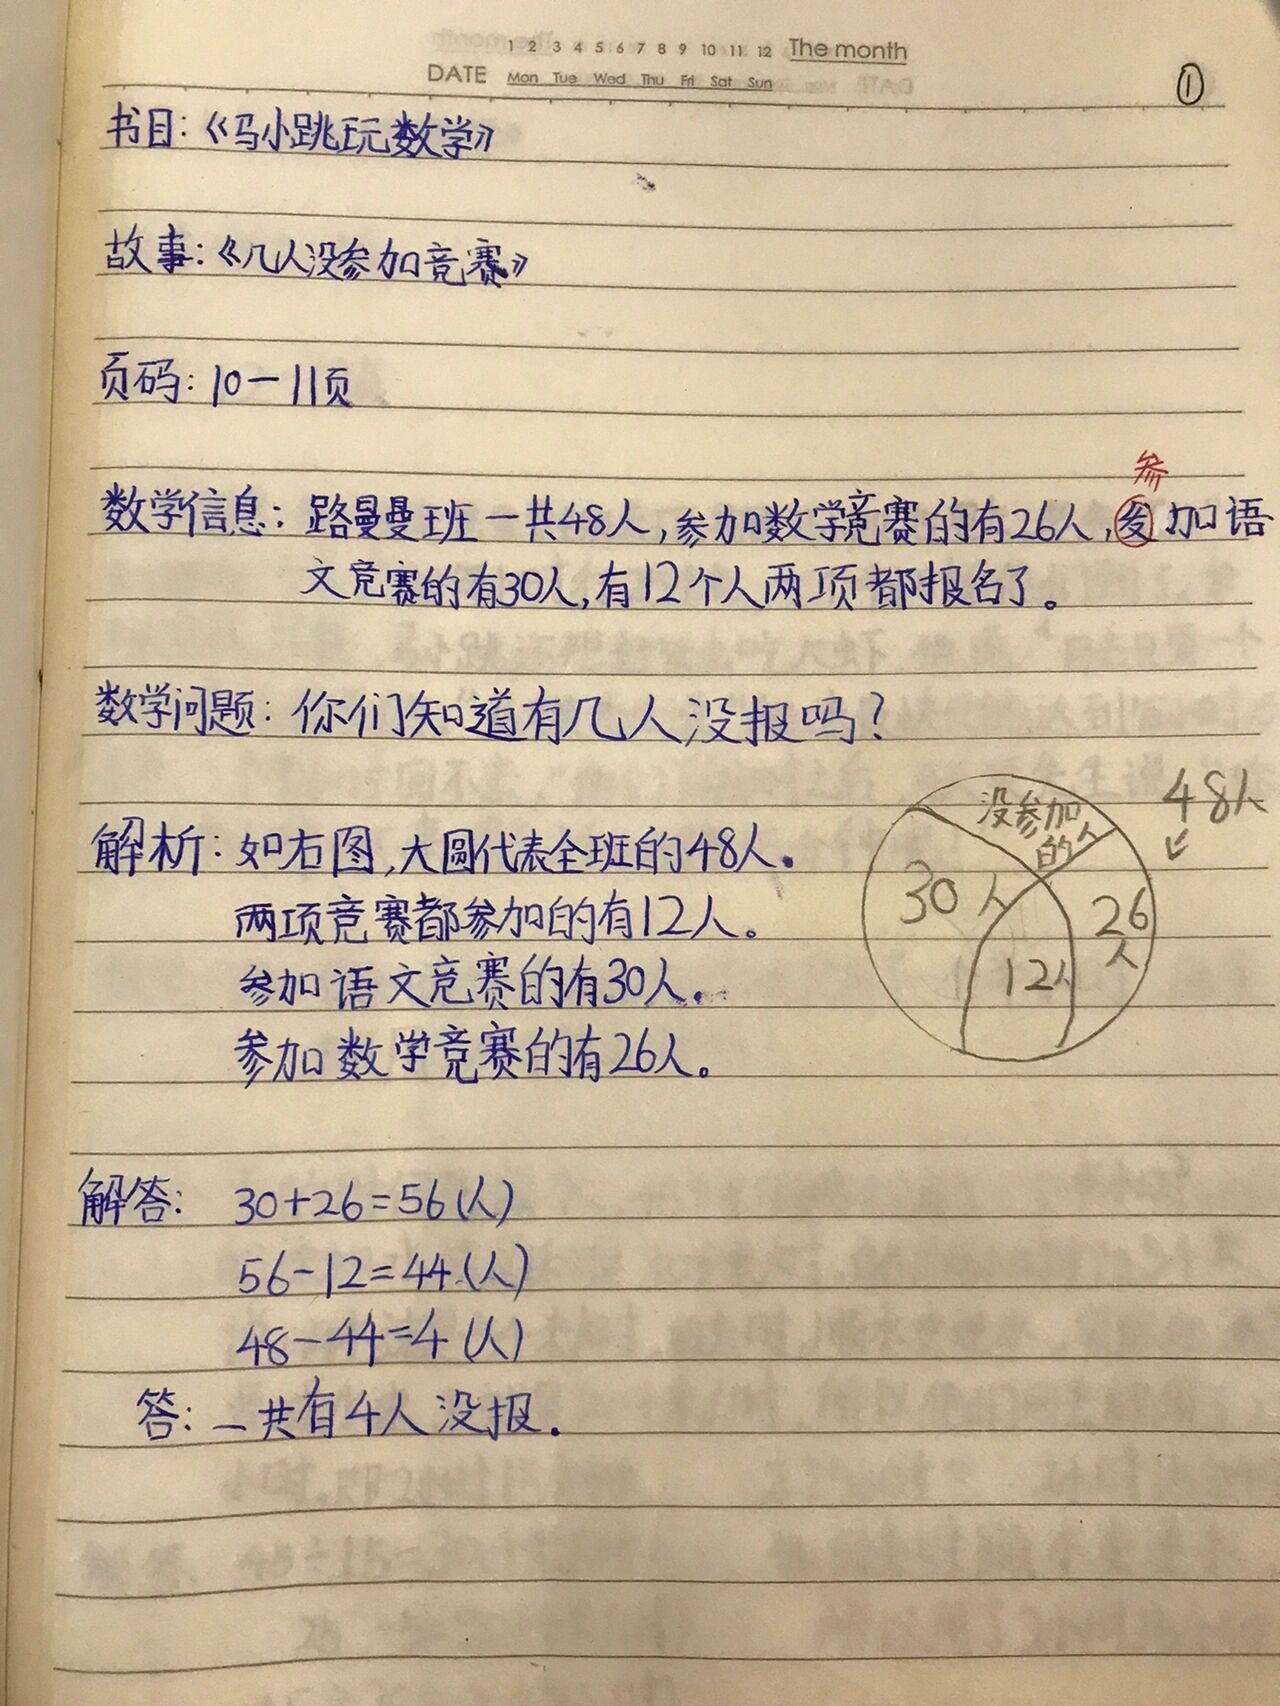 1 2 3 4 5 6 7 8 9 10 11 12 The month
DATE Mon Tue Wed Thu Fri Sat Sun
①
书目:《马小跳玩数学》
故事:《几人没参加竞赛》
页码:10-11页
参
数学信息:路曼曼班一共48人,参加数学竞赛的有26人,加语
文竞赛的有30人,有12个人两项都报名了。
数学问题:你们知道有几人没报吗?
没参加
的人
48人
解析:如右图,大圆代表全班的48人.
30人
26
人
12人
两项竞赛都参加的有12人。
参加语文竞赛的有30人.
参加数学竞赛的有26人。
解答: 30+26=56(人)
56-12=44(人)
48-44=4(人)
答:一共有4人没报.